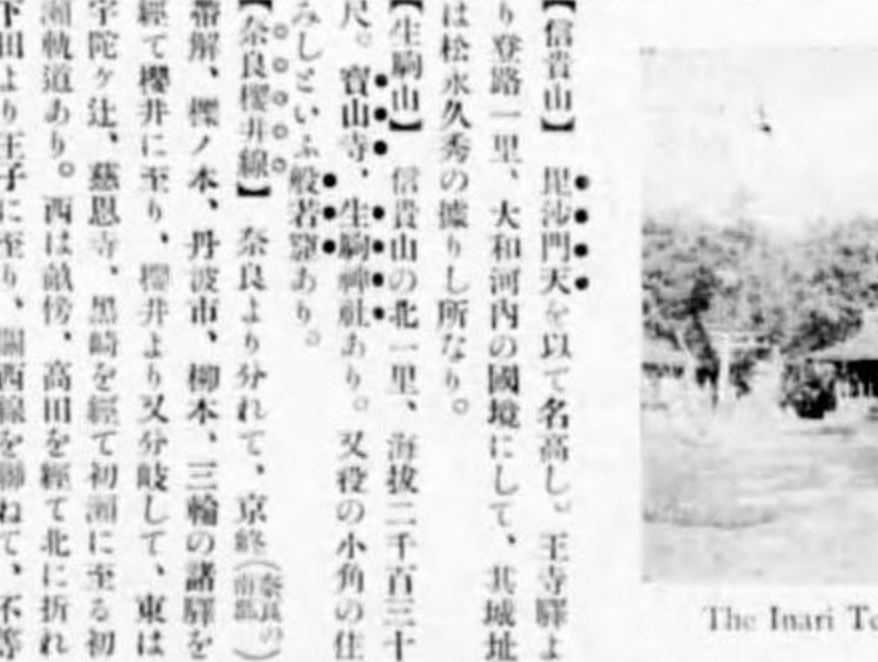 【信貴山】 毘沙門天を以て名高し。王寺驛よ
り登路一里、大和河内の國境にして、其城址
は松永久秀の據りし所なり。
【生駒山】 信貴山の北一里、海拔二千百三十
尺。寶山寺、生駒神社あり。又役の小角の住
みしといふ般若窟あり。
【奈良櫻井線】 奈良より分れて、京終(奈良の南部)
帶解、櫟ノ本、丹波市、柳本、三輪の諸驛を
經て櫻井に至り、櫻井より又分岐して、東は
宇陀ヶ辻、慈恩寺、黑崎を經て初瀬に至る初
瀬軌道あり。西は畝傍、高田を經て北に折れ
下田より王子に至り、關西線を聯ねて、不等
The Inari Te